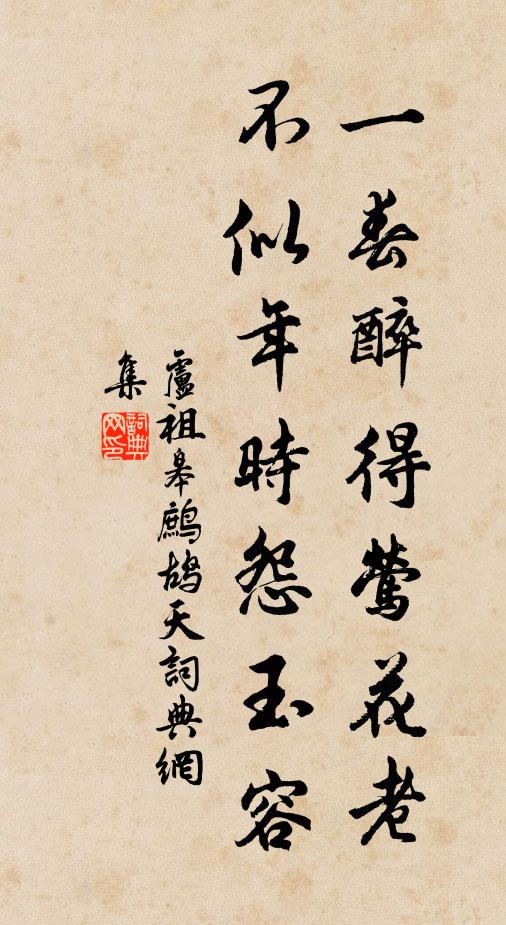 一春醉得鶯花老
不似年時怨玉容
盧祖皋鷓鴣天詞典網
集
詞典
网印